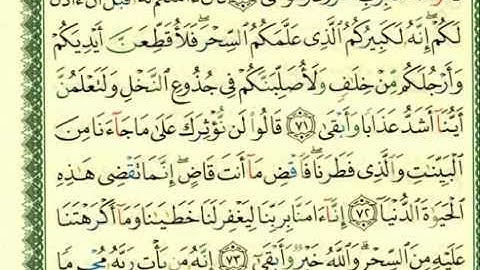 قَبْلَ أَنْ ءَاذَنَ
لَكُمْ إِنَّهُۥ لَكَبِيرُكُمُ ٱلَّذِى عَلَّمَكُمُ ٱلسِّحْرَ فَلَأُقَطِّعَنَّ أَيْدِيَكُمْ
وَأَرْجُلَكُم مِّنْ خِلَٰفٍ وَلَأُصَلِّبَنَّكُمْ فِى جُذُوعِ ٱلنَّخْلِ وَلَتَعْلَمُنَّ
أَيُّنَآ أَشَدُّ عَذَابًا وَأَبْقَىٰ ٧١ قَالُوا۟ لَن نُّؤْثِرَكَ عَلَىٰ مَا جَآءَنَا مِنَ
ٱلْبَيِّنَٰتِ وَٱلَّذِى فَطَرَنَا ۖ فَٱقْضِ مَآ أَنتَ قَاضٍ ۖ إِنَّمَا تَقْضِى هَٰذِهِ
ٱلْحَيَوٰةَ ٱلدُّنْيَآ ٧٢ إِنَّآ ءَامَنَّا بِرَبِّنَا لِيَغْفِرَ لَنَا خَطَٰيَٰنَا وَمَآ أَكْرَهْتَنَا
عَلَيْهِ مِنَ ٱلسِّحْرِ ۗ وَٱللَّهُ خَيْرٌ وَأَبْقَىٰٓ ٧٣ إِنَّهُۥ مَن يَأْتِ رَبَّهُۥ مُجْرِمًا